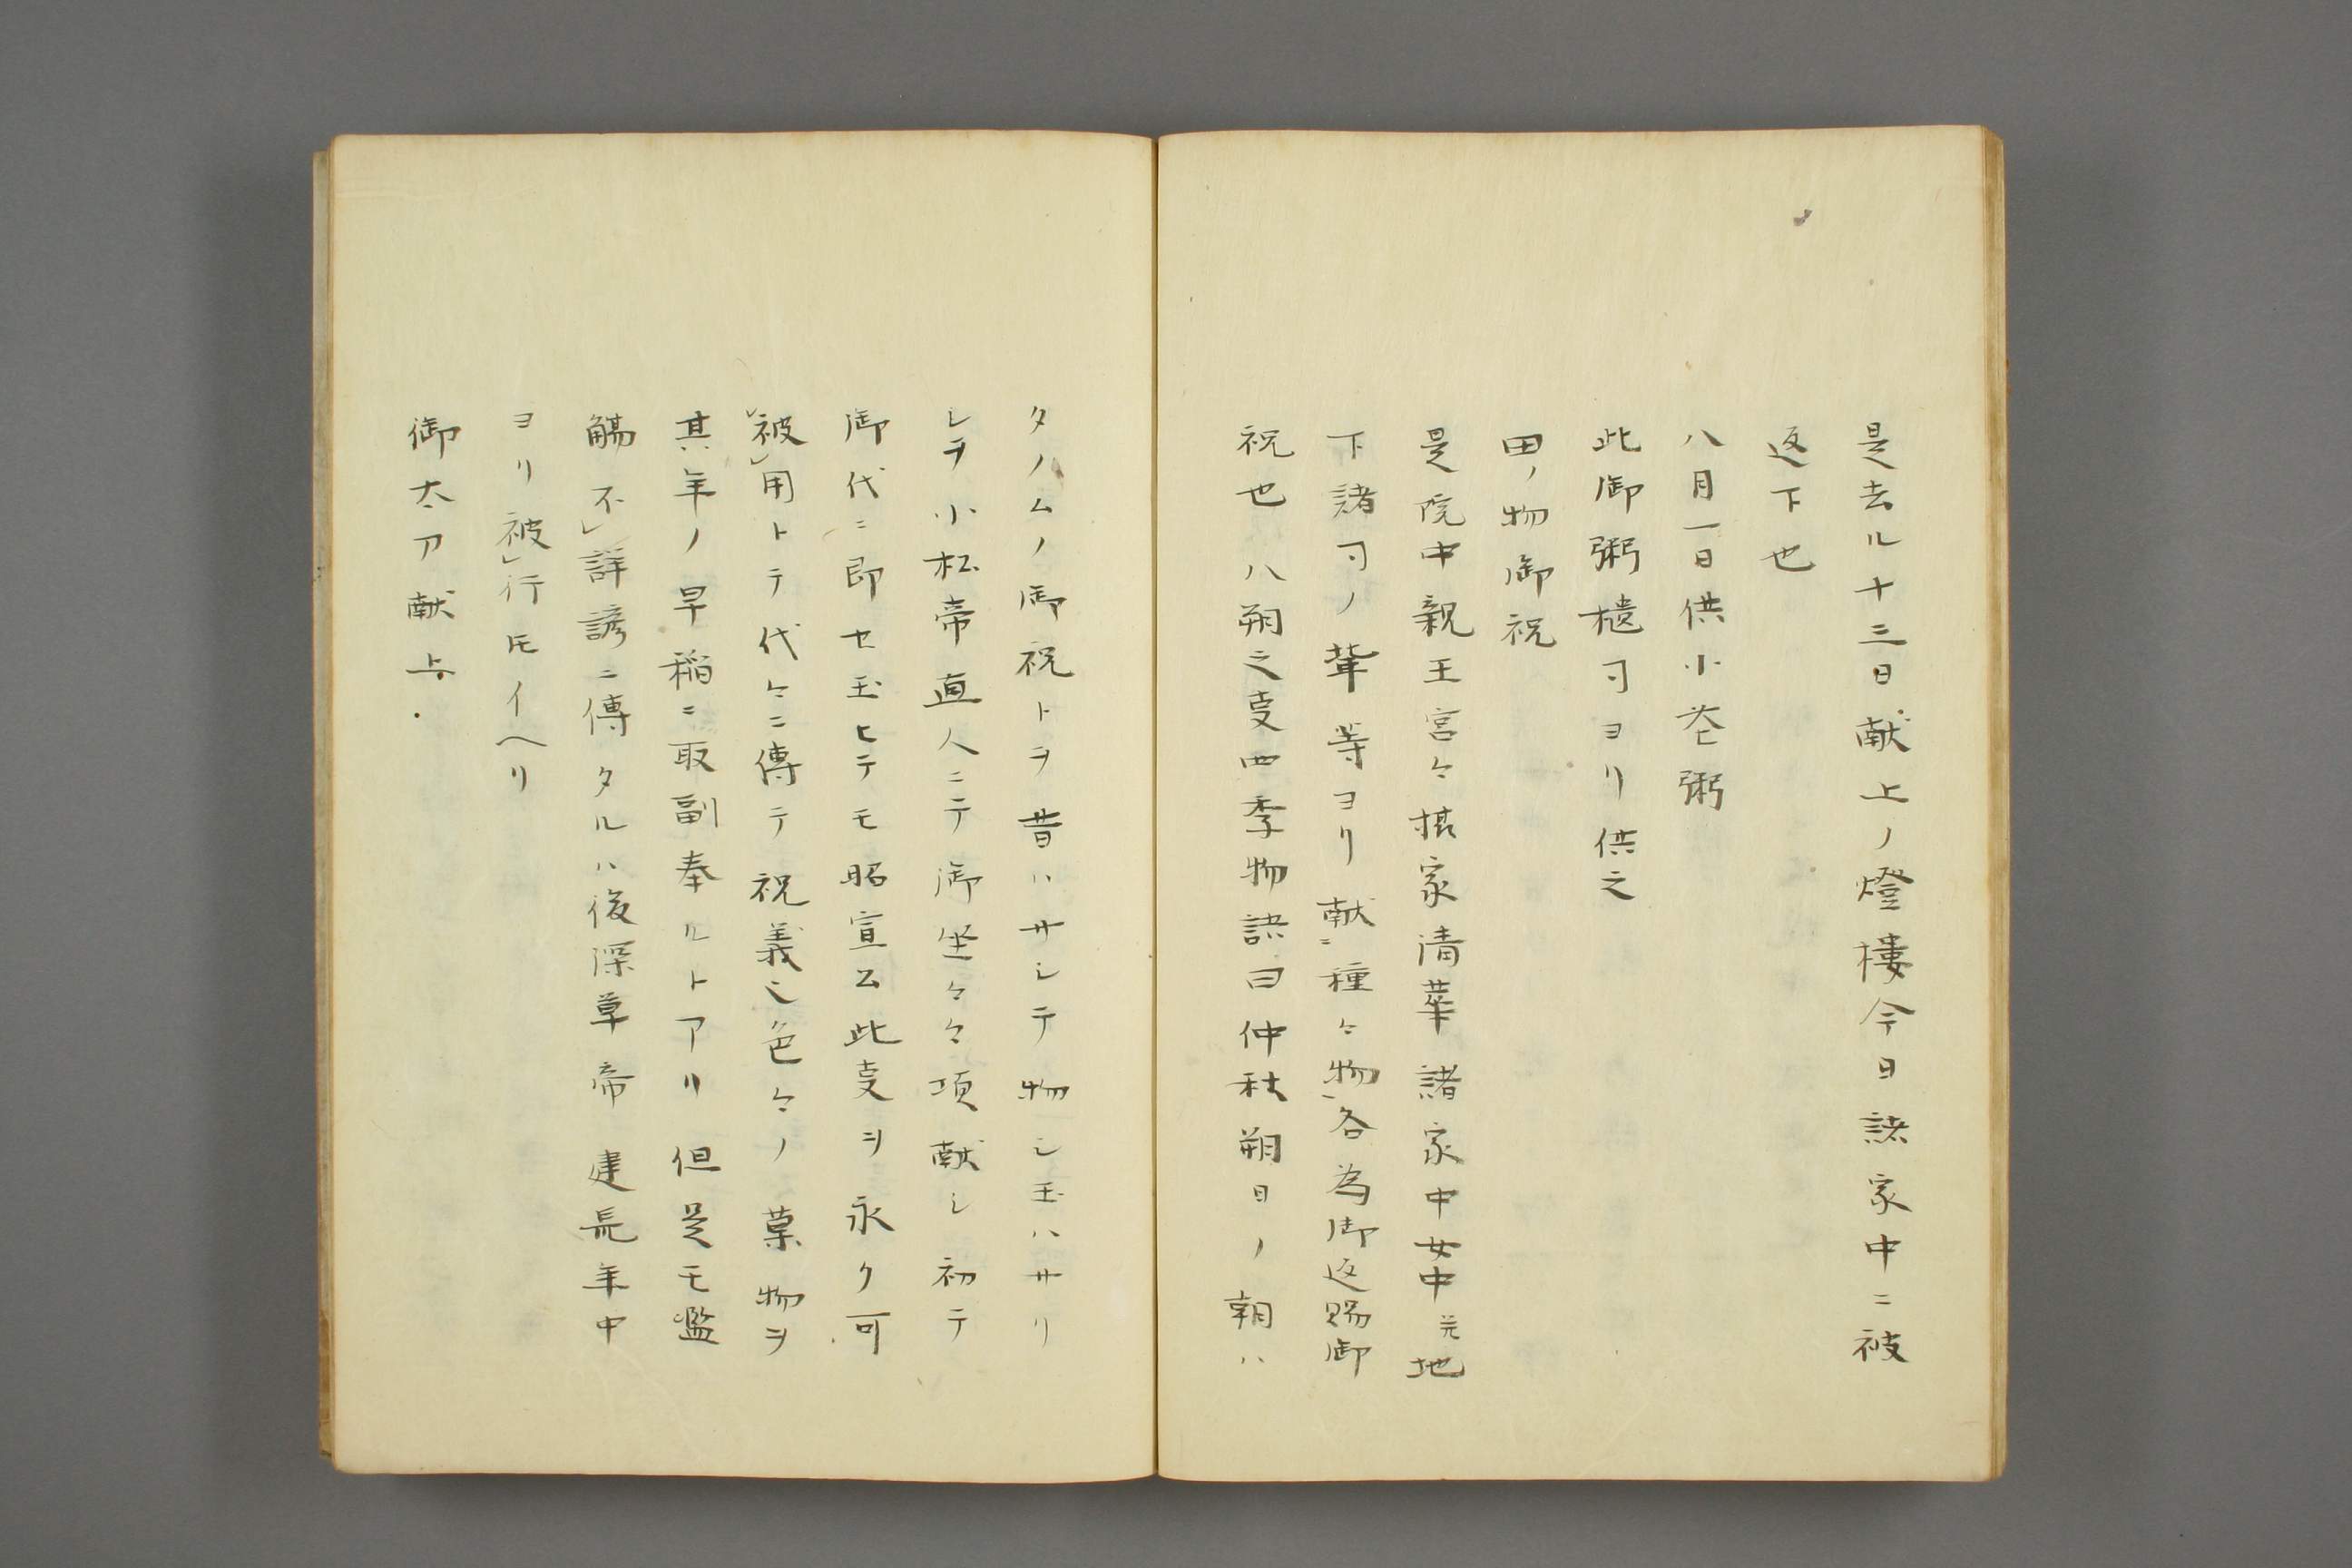 是去ル十三日献上ノ燈樓今日諸家中ニ被
返下也
八月一日供小苍粥
此御粥樻司ヨリ供之
田ノ物御祝
是院中親王宮々摂家清華諸家中女中并地
下諸司ノ輩等ヨリ献ニ種々物各為御返賜御
祝也八朔之叓四季物語曰仲秋朔日ノ朝ハ
タノムノ御祝トヲ昔ハサシテ物シ玉ハサリ
シヲ小松帝直人ニテ御坐々々項献シ初テ
御代ニ即セ玉ヒテモ昭宣公此叓ヲ永ク可
被用トテ代々ニ傳テ祝義之色々ノ菓物ヲ
其年ノ早稲ニ取副奉ルトアリ但是モ濫
觴不詳諺ニ傳タルハ後深草帝建長年中
ヨリ被行𪜈イヘリ
御太刀献上